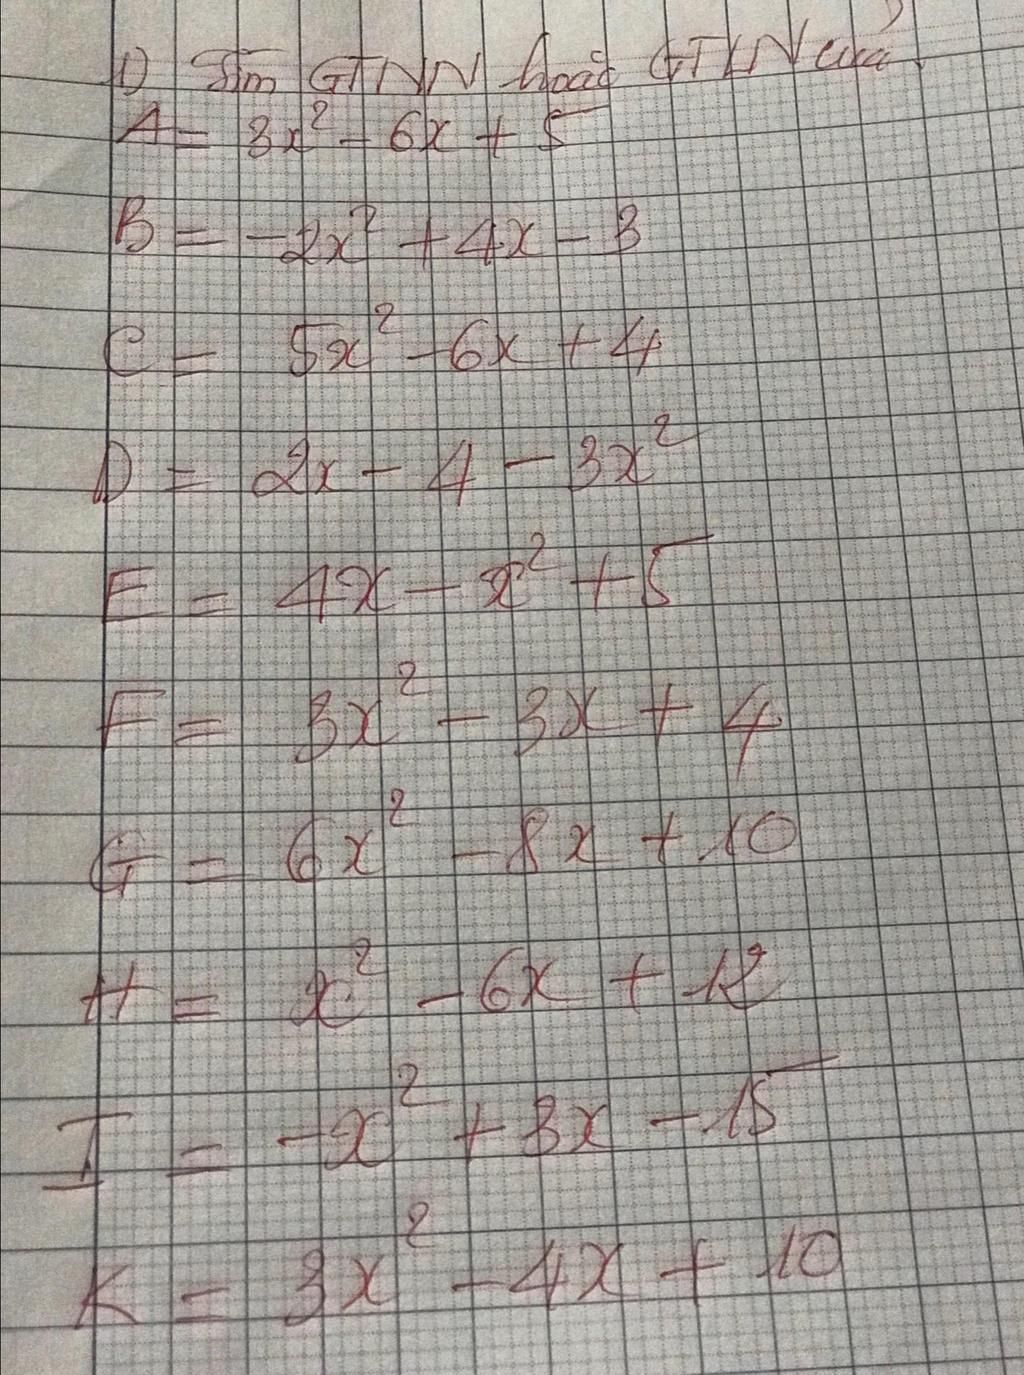 1) Tìm GTNN hoặc GTLN của
A = 3x² - 6x + 5
B = -2x² + 4x - 3
C = 5x² - 6x + 4
D = 2x - 4 - 3x²
E = 4x - x² + 5
F = 3x² - 3x + 4
G = 6x² - 8x + 10
H = x² - 6x + 12
I = -x² + 3x - 15
K = 3x² - 4x + 10